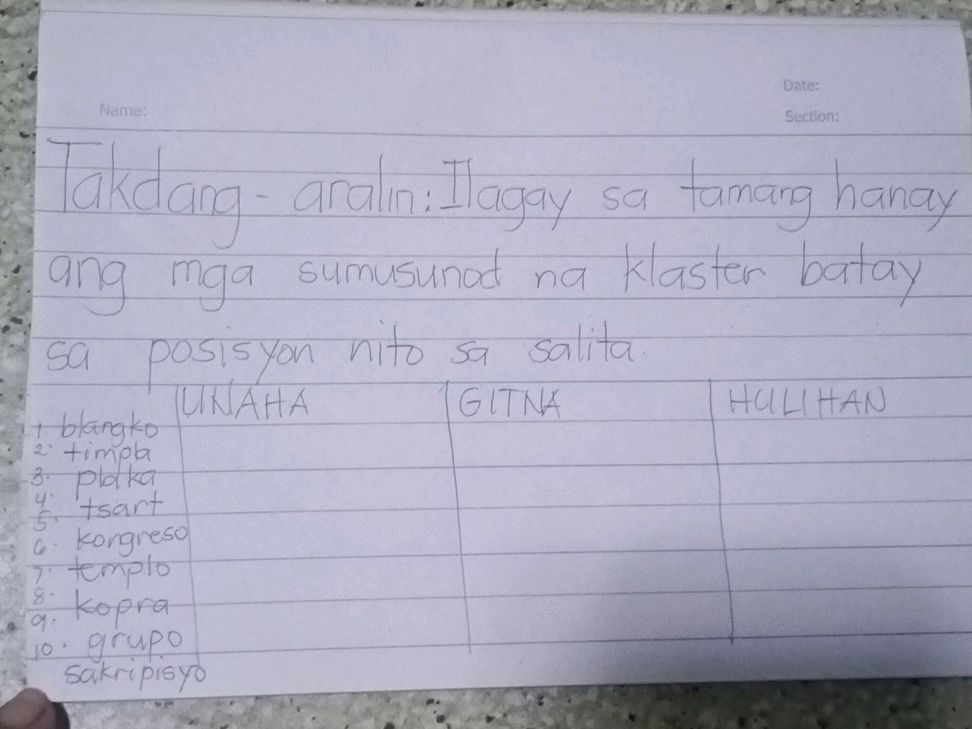 Date:
Name:
Section:
Takdang-aralin: Ilagay sa tamang hanay
ang mga sumusunod na klaster batay
sa posisyon nito sa salita.
UNAHA GITNA HULIHAN
1. blangko
2. timpla
3. plaka
4. tsart
5. kongreso
6. templo
7. kopra
8. grupo
9. sakripisyo
10.